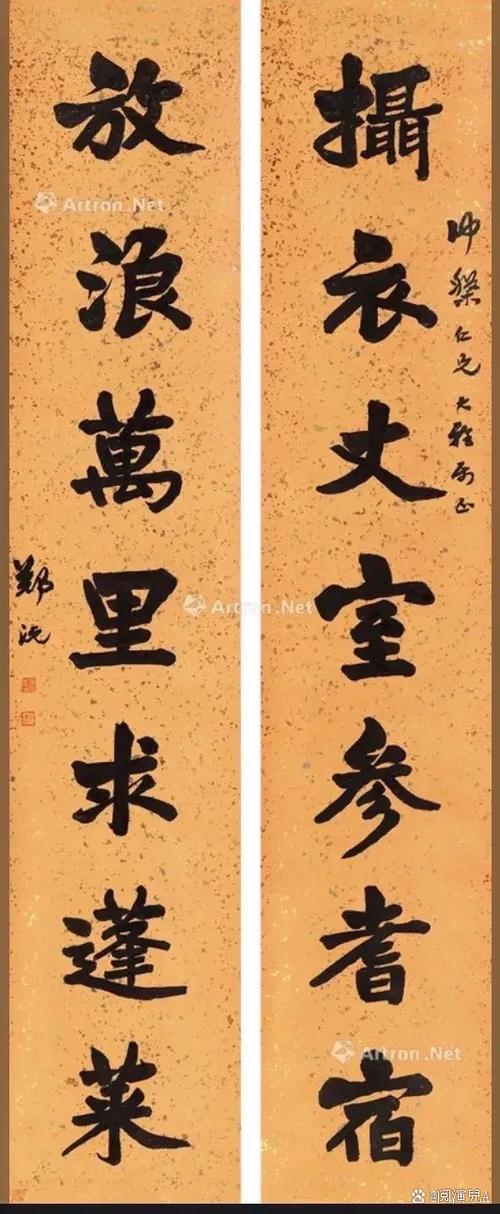 仁兄大雅屬正
攝衣丈室參耆宿
放浪萬里求蓬萊
鄭沅
Artron.Net
Artron.Net
Artron.Net